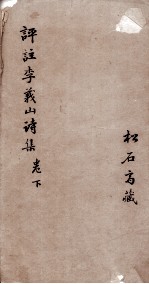 評註李義山诗集卷下
松石斋藏